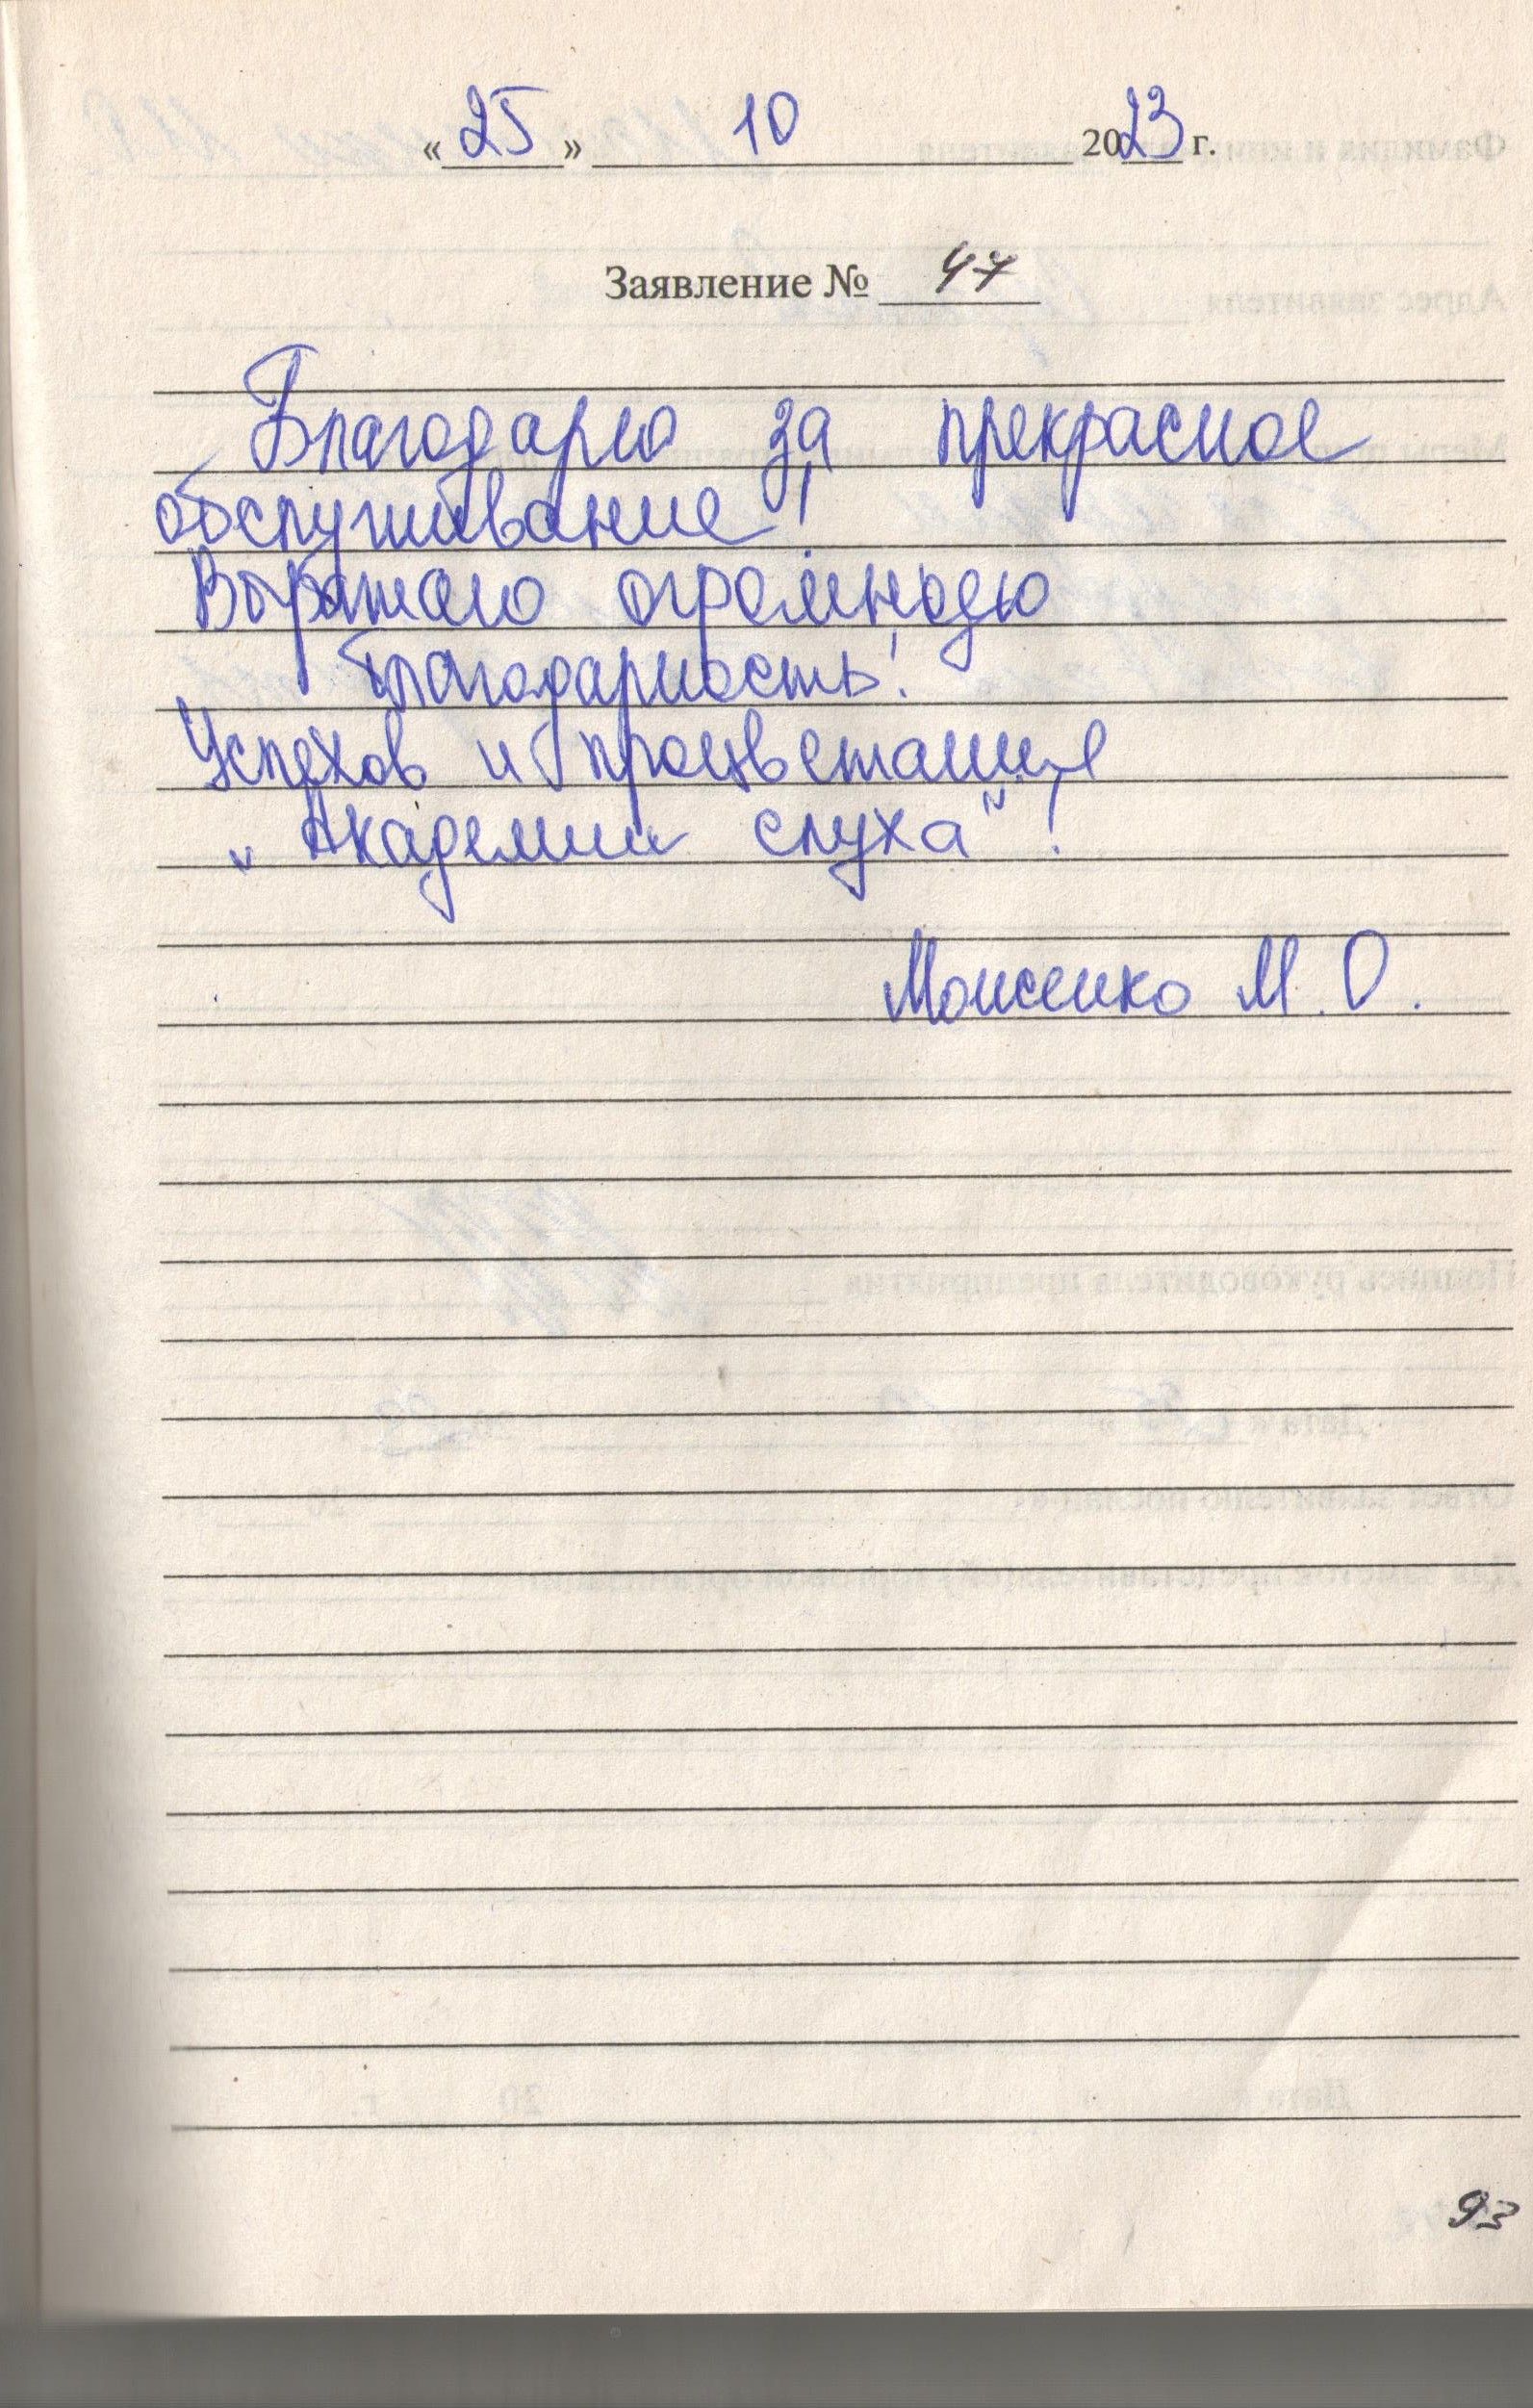 «25» 10 2023 г.
Заявление № 47
Благодарю за прекрасное
обслуживание!
Выражаю огромную
благодарность!
Успехов и процветания
„Академии слуха"!
Моисеенко М. О.
93